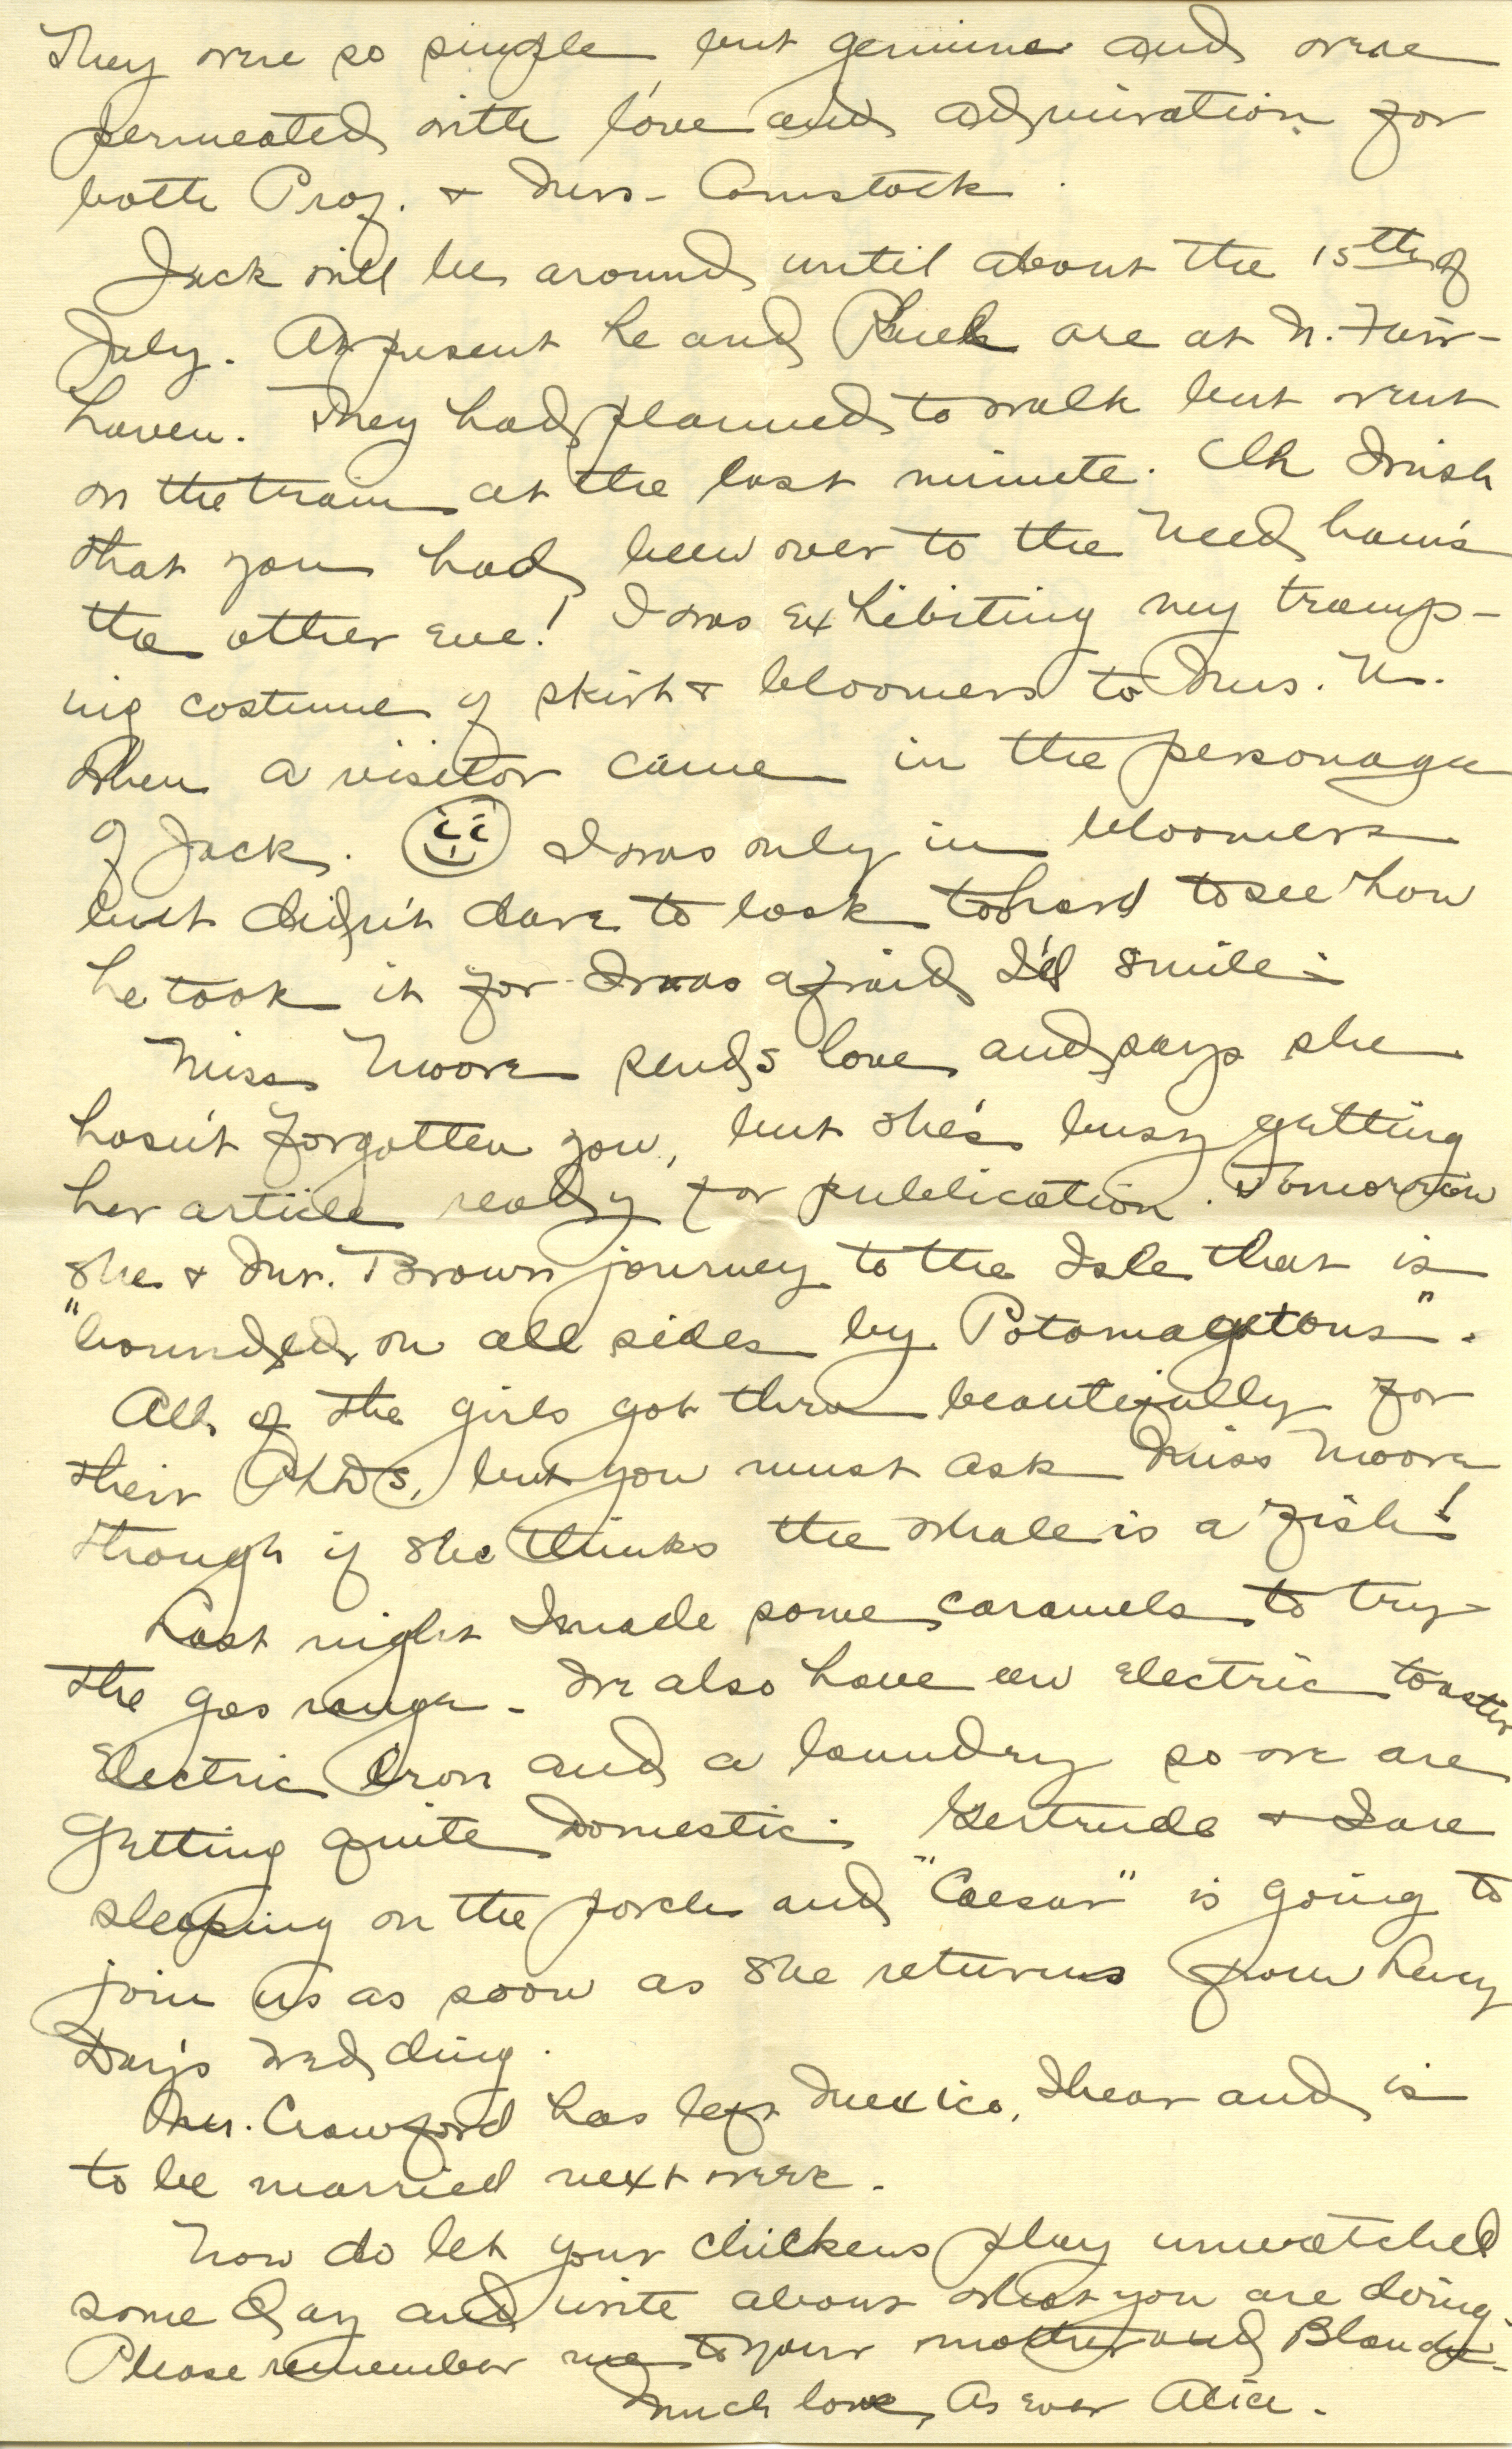 They were so simple but genuine and were
permeated with love and admiration for
both Prof. & Mrs- Comstock.
Jack will be around until about the 15th of
July. At present he and Ruck are at N. Fair-
haven. They had planned to walk but went
on the train at the last minute. Oh I wish
that you had been over to the Needham's
the other eve! I was exhibiting my tramp-
ing costume of skirt & bloomers to Mrs. N.
when a visitor came in the personage
of Jack. I was only in bloomers
but didn't dare to look too hard to see how
he took it for I was afraid I'd smile.
Miss Moore sends love and says she
hasn't forgotten you, but she's busy getting
her article ready for publication. Tomorrow
she & Mr. Brown journey to the Isle that is
"bounded on all sides by Potomagetons".
All of the girls got thru beautifully for
their PhDs, but you must ask Miss Moore
though if she thinks the whale is a fish!
Last night I made some caramels to try
the gas range. We also have an electric toaster
electric iron and a laundry so we are
getting quite domestic. Gertrude & I are
sleeping on the porch and "Caesar" is going to
join us as soon as she returns from
Day's wedding.
Mr. Crawford has left Mexico, I hear and is
to be married next week.
Now do let your chickens play unwatched
some day and write about what you are doing.
Please remember me to your mother and
Much love, As ever Alice.